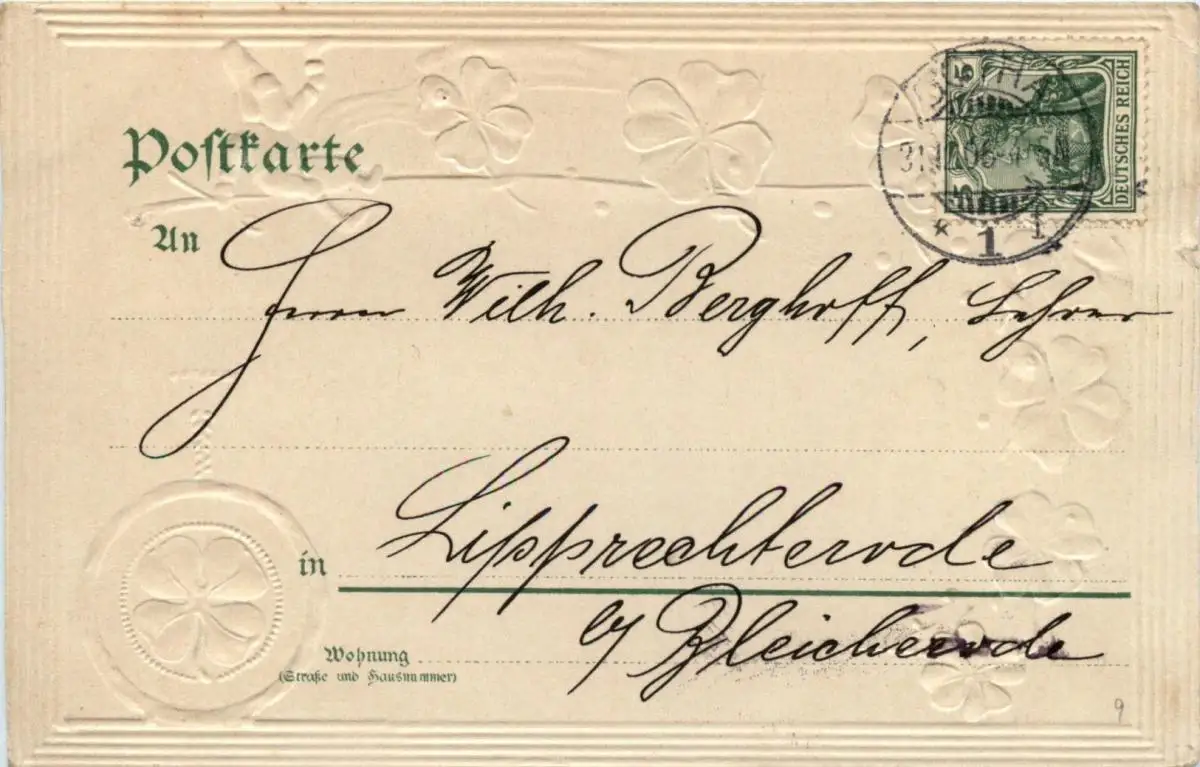 Postkarte
5
5
DEUTSCHES REICH
1
An
Herrn Wilh. Berghoff, Lehrer
in
Lipprechterode
b/ Bleicherode
Wohnung
(Straße und Hausnummer)
9